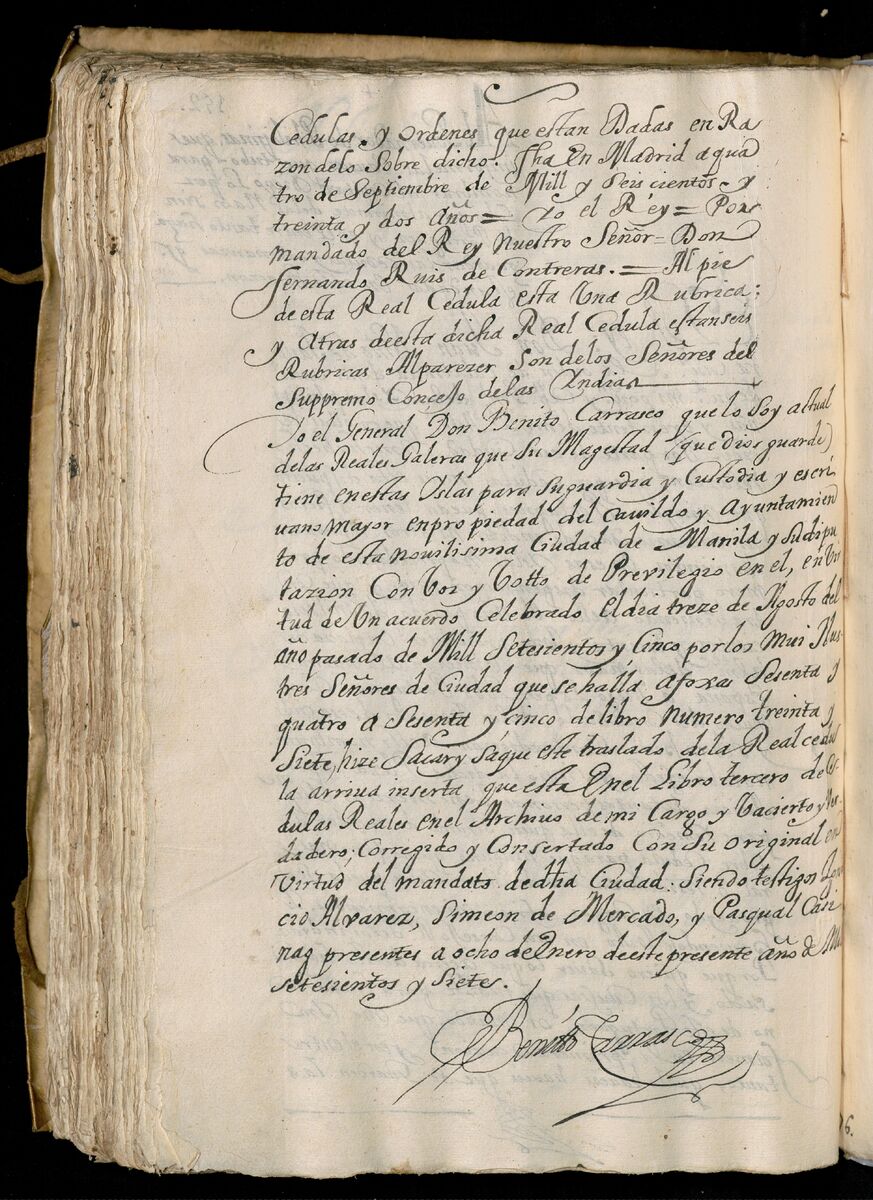 Cedulas, y ordenes que estan Dadas en Ra
zon delo Sobre dicho. fha En Madrid a qua
tro de Septiembre de Mill y Seis cientos y
treinta y dos Años = Yo el Rey = Por
mandado del Rey Nuestro Señor = Don
fernando Ruis de Contreras. = Al pie
de esta Real Cedula esta Una Rubrica;
y Atras de esta dicha Real Cedula estan seis
Rubricas Alparezer Son delos Señores del
Suppremo Concejo delas Yndias
Yo el General Don Benito Carrasco que lo Soy actual
delas Reales Galeras que Su Magestad (que dios guarde)
tiene en estas Islas para Suguardia y Custodia y escri
uano mayor enpropiedad del Cauildo y Ayuntamien
to de esta novilisima Ciudad de Manila y su dipu
tazion Con Voz y Votto de Previlegio en el, en Vir
tud de Un acuerdo Celebrado El dia treze de Agosto del
año pasado de Mill Setesientos y Cinco por los Mui Ilus
tres Señores de Ciudad que se halla Afoxas Sesenta y
quatro a Sesenta y cinco de libro numero treinta y
Siete, hize Sacar y Saque este traslado de la Real cedu
la arriva inserta que esta En el Libro tercero de Ce
dulas Reales en el Archivo de mi Cargo y Vacierto y Ver
dadero; Corregido y Consertado Con Su original en
Virtud del mandato de dha Ciudad: Siendo testigos Ygna
cio Alvarez, Simeon de Mercado, y Pasqual Casi
nag presentes a ocho de Enero de este presente año de Mill
Setesientos y Siete.
Benito Carrasco